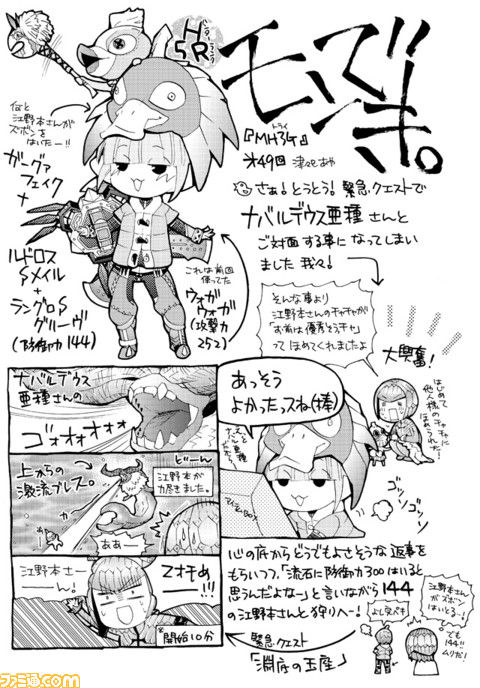 モンでき。
ハンターランク
HR5
『MH3G』
トライ
第49回 津々巳あや
さぁ!とうとう!緊急クエストで
ナバルデウス亜種さんと
ご対面する事になってしまい
ました我々!
何と
江野本さんが
ズボンを
はいたー!!
ガーグァ
フェイク
+
ルドロス
Sメイル
+
ラングロS
グリーヴ
(防御力144)
これは前回
使ってた
ウォガ
ウォガ
(攻撃力
252)
そんな事より
江野本さんのチャチャが
「お前は優秀そうチャ」
ってほめてくれましたよ
大興奮!
はじめて
他人様の
チャチャに
ほめられた!!
ナバルデウス
亜種さんの
ゴオオオオオ
あっそう
よかったっスね(棒)
上からの
激流ブレス。
どーん
江野本が
力尽きました。
ああー
アイテムBOX
ゴソゴソ
江野本さー
ーん!
Zオモめ
!!!
※開始10分
心の底からどうでもよさそうな返事を
もらいつつ、「流石に防御力300はいると
思うんだよなー」と言いながら144
の江野本さんと狩りへー!
緊急クエスト
「淵底の玉座」
江野本さん
がズボン
はいとるー!
よし突ベキ
でも
144!!
ムリだ!
ファミ通.com